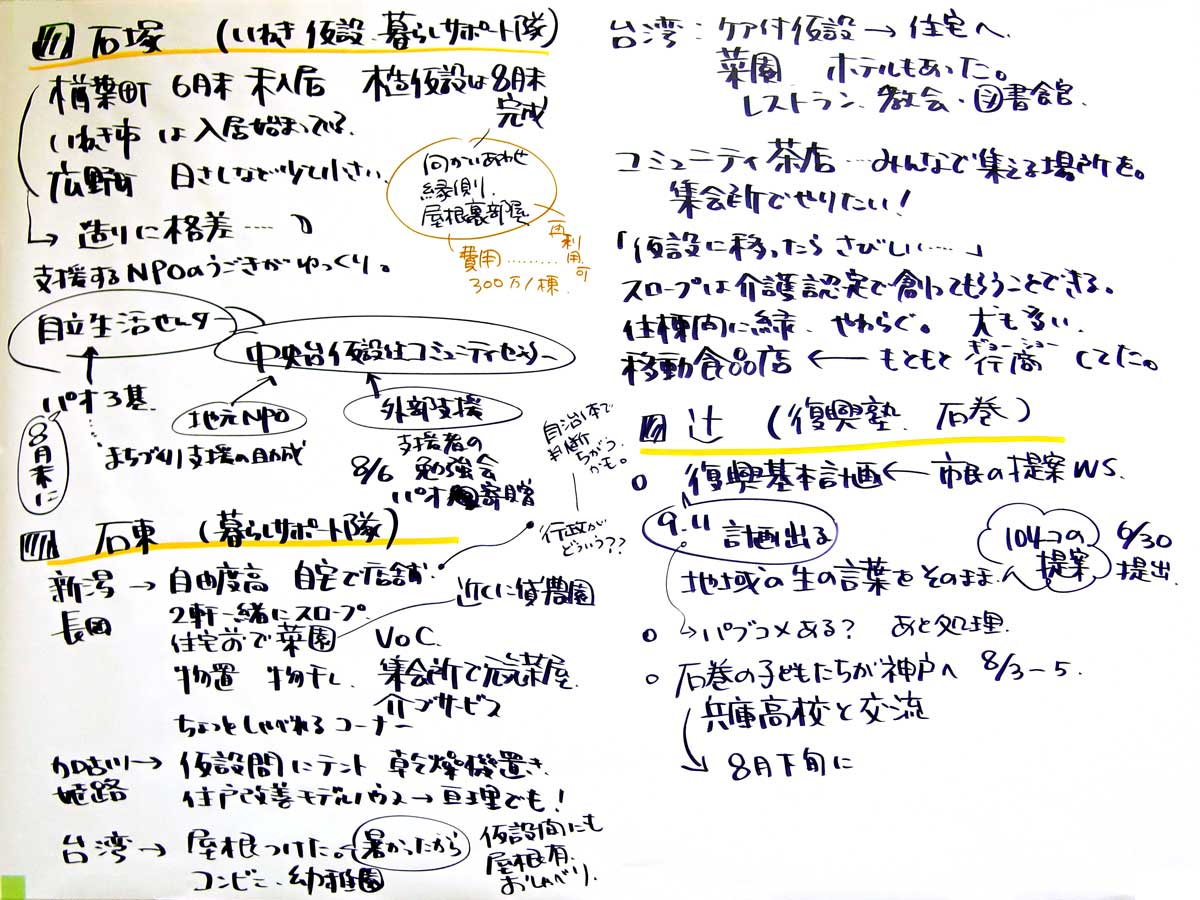 石塚 (いわき 仮設 暮らしサポート隊)
楢葉町 6月末 未入居 木造仮設は8月末
完成
いわき市 は 入居始まってる。
広野町 日さしなど少し小さい。
→ 造りに格差……
向かいあわせ
縁側
屋根裏部屋
再利用可
費用………
300万/棟
支援するNPOのうごきがゆっくり。
自立生活センター
中央台仮設はコミュニティセンター
パオ3基
8月末に
地元NPO
外部支援
まちづくり支援の助成
支援者の
8/6 勉強会
パオ 寄贈
自治体で
判断
ちがう
かも。
行政が
どういう??
石東 (暮らしサポート隊)
新潟 → 自由度高 自宅で店舗
長岡 2軒一緒にスロープ
近くに貸農園
住宅前で菜園 VoC
物置 物干し 集会所で元気茶屋
介ゴサービス
ちょっとしゃべれるコーナー
加古川→ 仮設間にテント 乾燥機置き
姫路 住戸改善モデルハウス→亘理でも!
台湾→ 屋根つけた。暑かったから
コンビニ、幼稚園
仮設間にも
屋根有
おしゃべり。
台湾:ケア付仮設→住宅へ
菜園 ホテルもあった。
レストラン、教会・図書館
コミュニティ茶店…みんなで集える場所を。
集会所でやりたい!
「仮設に移ったらさびしい……」
スロープは介護認定で創ってもらうことできる。
住棟間に緑 やわらぐ。犬も多い
移動食品店 ← もともと行商してた。
ギョーショー
辻 (復興塾 石巻)
○ 復興基本計画←市民の提案WS.
9.11 計画出る
104コの
提案
6/30
提出
地域の生の言葉をそのまま
○ →パブコメある? あと処理
○ 石巻の子どもたちが神戸へ 8/3-5.
兵庫高校と交流
→ 8月下旬に